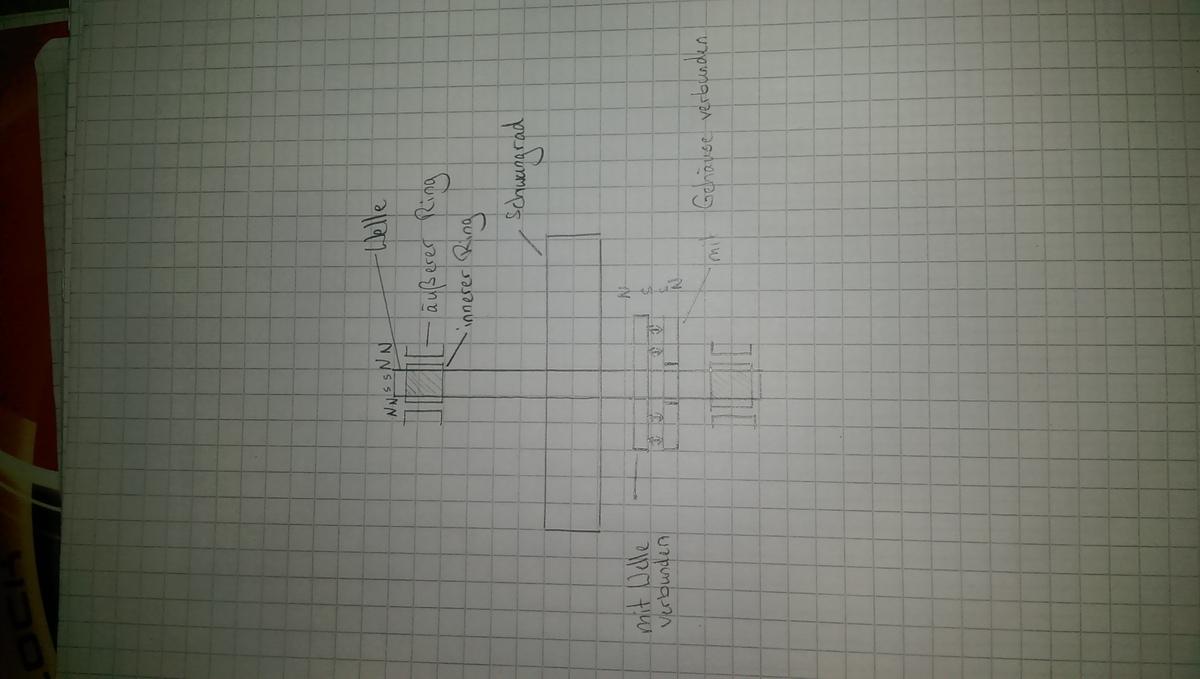 NN S S N N
Welle
äußerer Ring
innerer Ring
Schwungrad
N
S
S
N
mit Gehäuse verbunden
mit Welle
verbunden
OCK